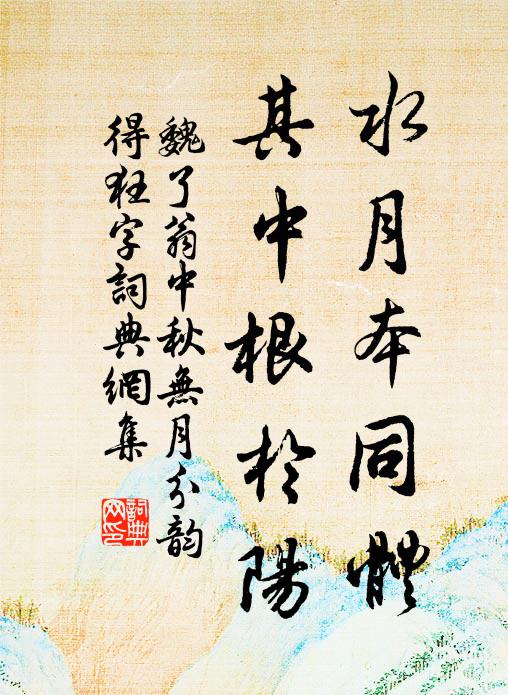 水月本同體
其中根於陽
魏了翁中秋無月分韵
得狂字詞典網集
詞典网印